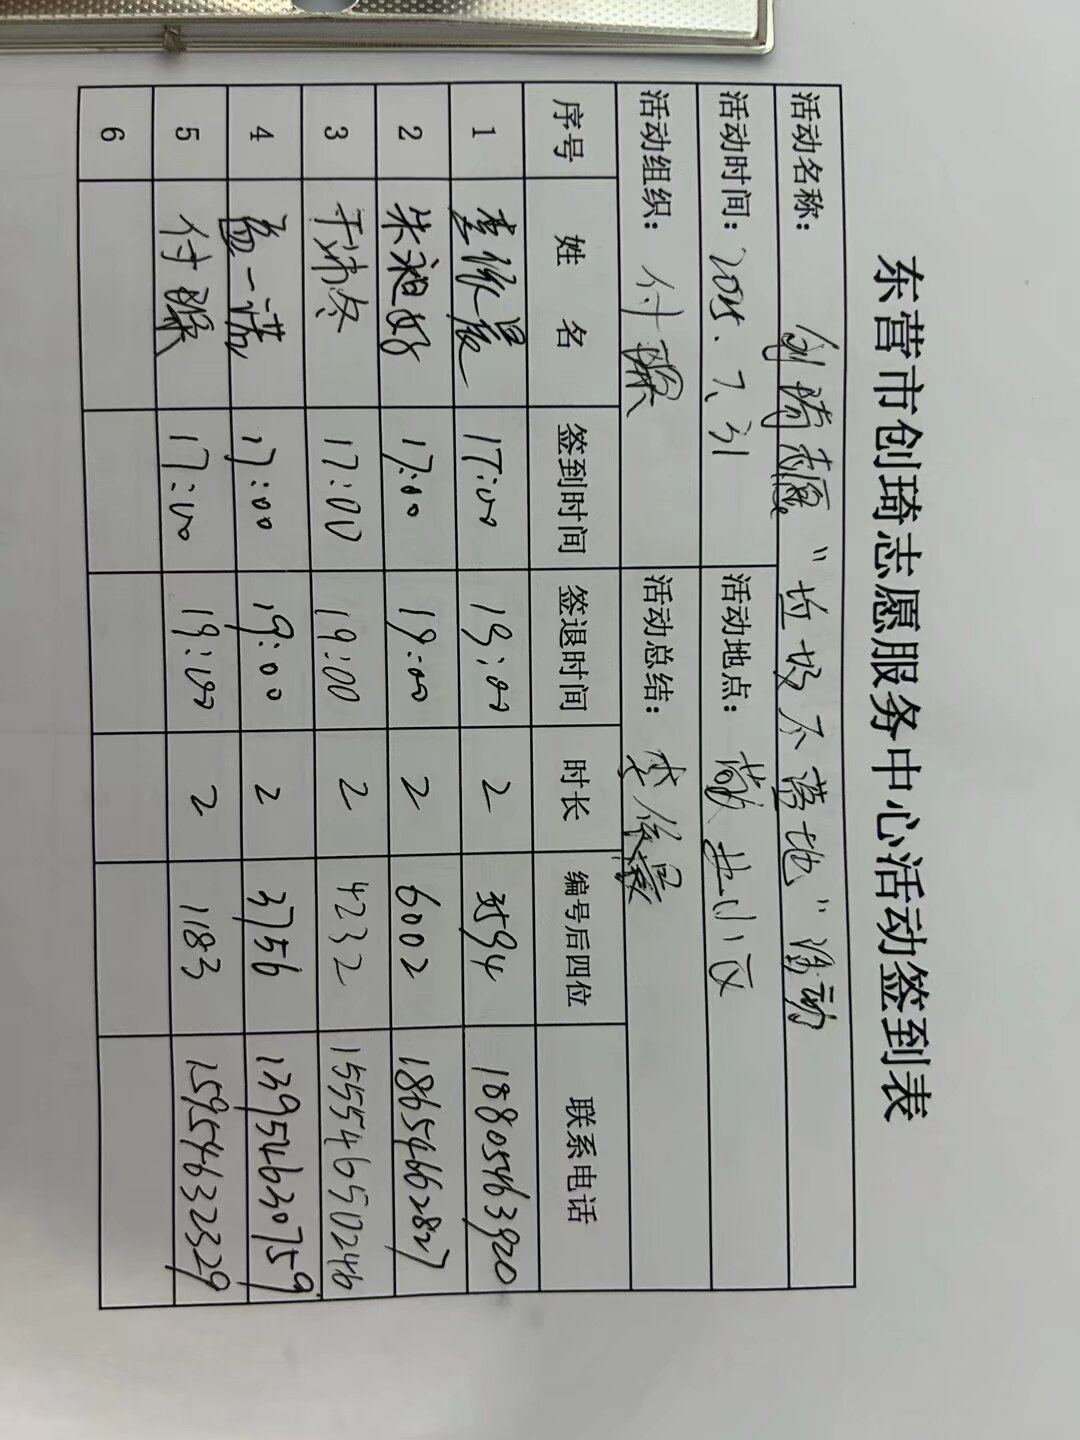 东营市创琦志愿服务中心活动签到表
活动名称: 创琦志愿 "垃圾不落地" 活动
活动时间: 2025.7.31 活动地点: 小区
活动组织: 付 活动总结: 李依晨
序号 姓名 签到时间 签退时间 时长 编号后四位 联系电话
1 李依晨 17:00 19:00 2 18805463920
2 朱昶好 17:00 19:00 2 6002 18654662827
3 于沛冬 17:00 19:00 2 4232 15554650246
4 孟一诺 17:00 19:00 2 3756 13954630759
5 付 17:00 19:00 2 1183 15954632329
6